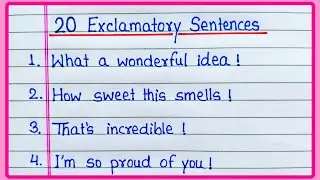 20 Exclamatory Sentences
1. What a wonderful idea !
2. How sweet this smells !
3. That's incredible !
4. I'm so proud of you !